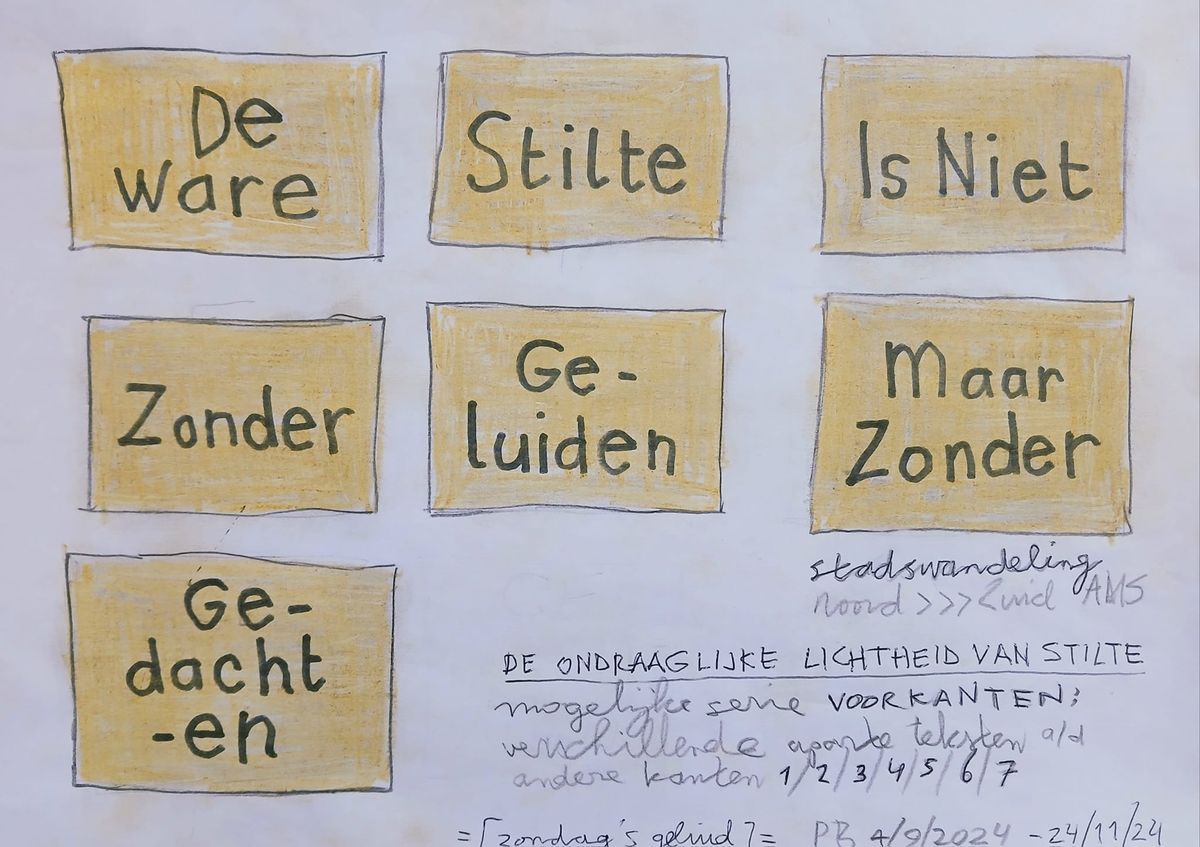 De
Ware
Stilte
Is Niet
Zonder
Ge-
luiden
Maar
Zonder
Ge-
dacht
-en
stadswandeling
Noord >>> Zuid AMS
DE ONDRAAGLIJKE LICHTHEID VAN STILTE
mogelijke serie VOORKANTEN:
verschillende aparte teksten a/d
andere kanten 1/2/3/4/5/6/7
=[zondag's geluid]= PB 4/9/2024 -24/11/24